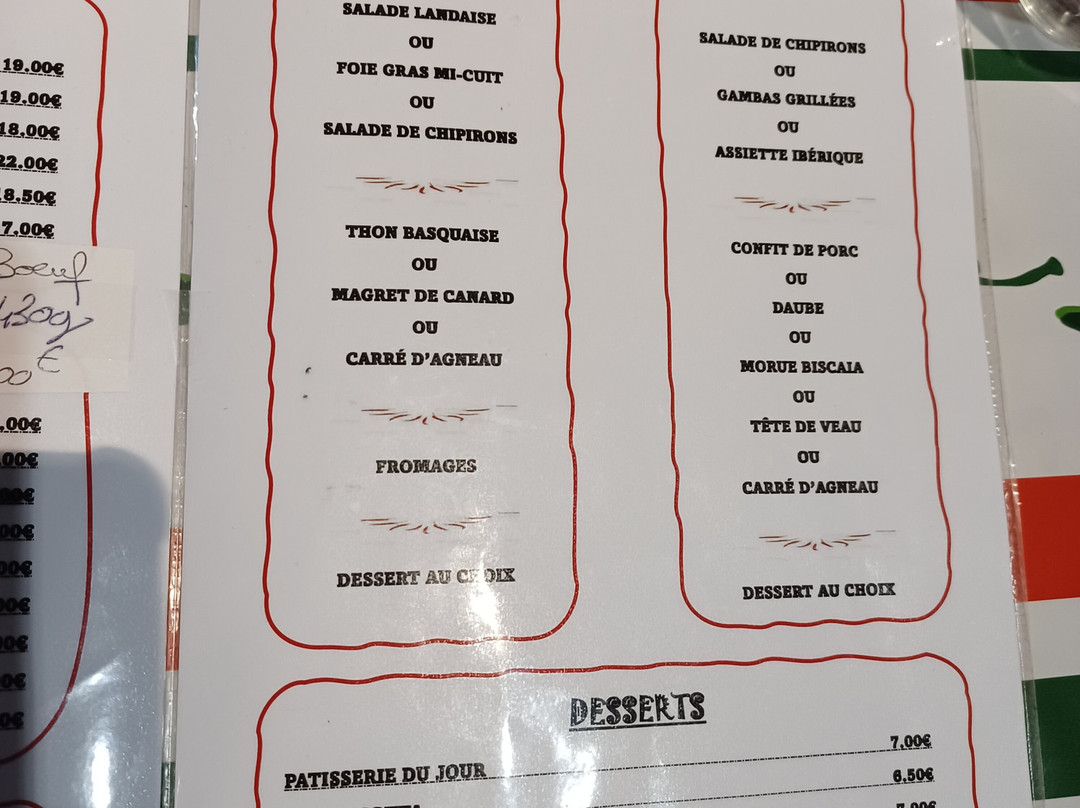 19.00€
19.00€
18.00€
22.00€
8.50€
7.00€
Boeuf
430g
00€
,00€
.00€
00€
00€
00€
00€
00€
0€
0€
SALADE LANDAISE
OU
FOIE GRAS MI-CUIT
OU
SALADE DE CHIPIRONS
THON BASQUAISE
OU
MAGRET DE CANARD
OU
CARRÉ D'AGNEAU
FROMAGES
DESSERT AU CHOIX
SALADE DE CHIPIRONS
OU
GAMBAS GRILLÉES
OU
ASSIETTE IBÉRIQUE
CONFIT DE PORC
OU
DAUBE
OU
MORUE BISCAIA
OU
TÊTE DE VEAU
OU
CARRÉ D'AGNEAU
DESSERT AU CHOIX
DESSERTS
PATISSERIE DU JOUR 7,00€
6.50€